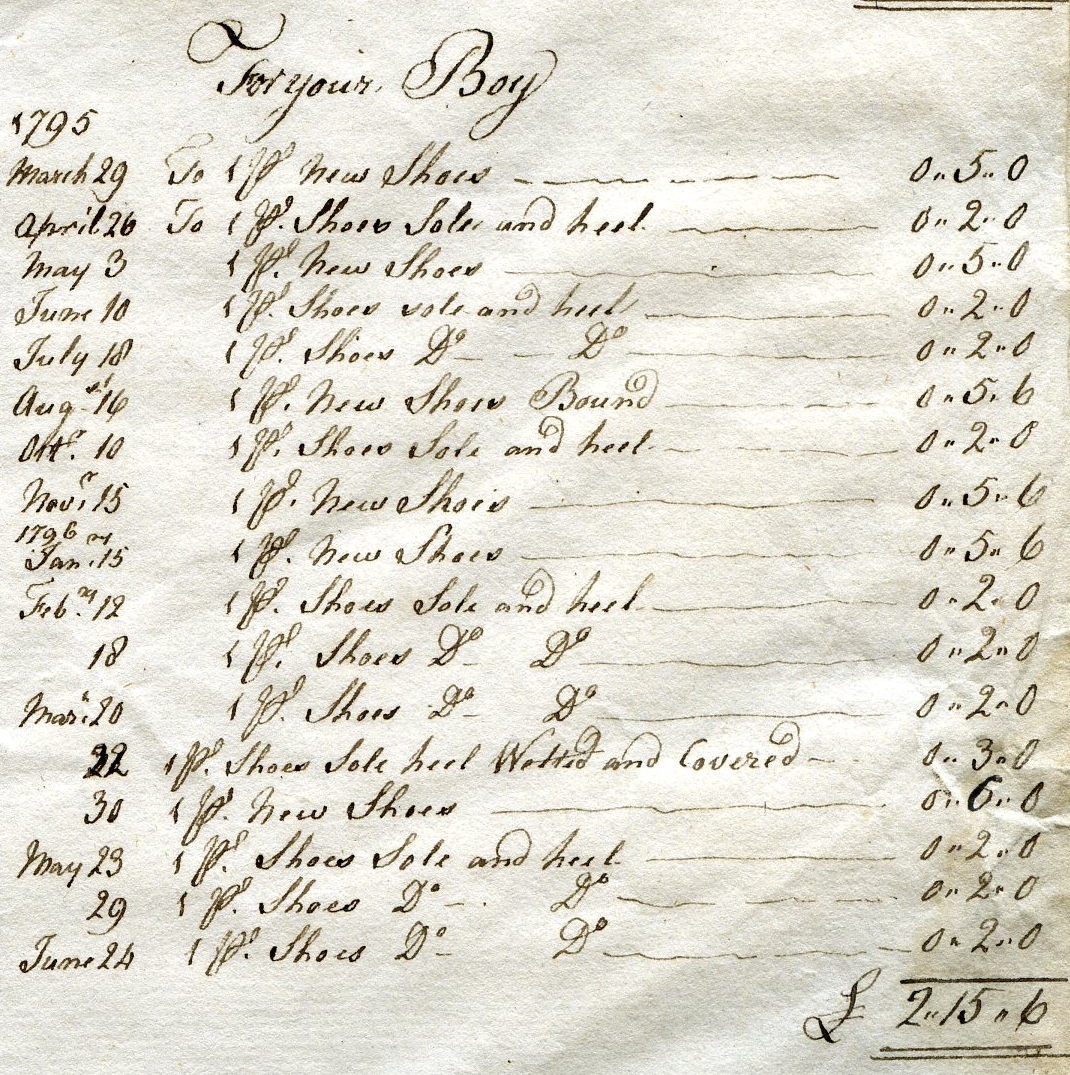 For your Boy
1795
March 29 To 1 Pr. New Shoes 0〃5〃0
April 26 To 1 Pr. Shoes Sole and heel 0〃2〃0
May 3 1 Pr. New Shoes 0〃5〃0
June 10 1 Pr. Shoes sole and heel 0〃2〃0
July 18 1 Pr. Shoes Do Do 0〃2〃0
Augst 16 1 Pr. New Shoes Bound 0〃5〃6
Octr. 10 1 Pr. Shoes Sole and heel 0〃2〃0
Novr. 15 1 Pr. New Shoes 0〃5〃6
1796
Jany. 15 1 Pr. New Shoes 0〃5〃6
Feby. 12 1 Pr. Shoes Sole and heel 0〃2〃0
18 1 Pr. Shoes Do Do 0〃2〃0
Mar. 20 1 Pr. Shoes Do Do 0〃2〃0
22 1 Pr. Shoes Sole heel Welted and Covered 0〃3〃0
30 1 Pr. New Shoes 0〃6〃0
May 23 1 Pr. Shoes Sole and heel 0〃2〃0
29 1 Pr. Shoes Do Do 0〃2〃0
June 24 1 Pr. Shoes Do Do 0〃2〃0
£ 2〃15〃6